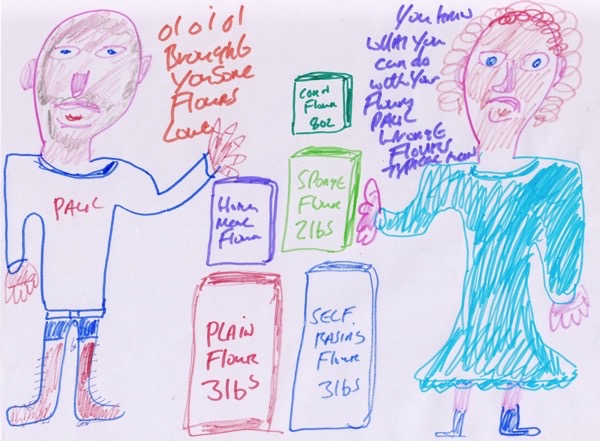 oi oi oi
Brought
You Some
Flours
Love
You know
what you
can do
with your
PAUL
Flours
typical man
Corn
Flour
8oz
SPONGE
Flour
2lbs
Meal
Flour
PAUL
PLAIN
Flour
3lbs
SELF
RASING
Flour
3lbs